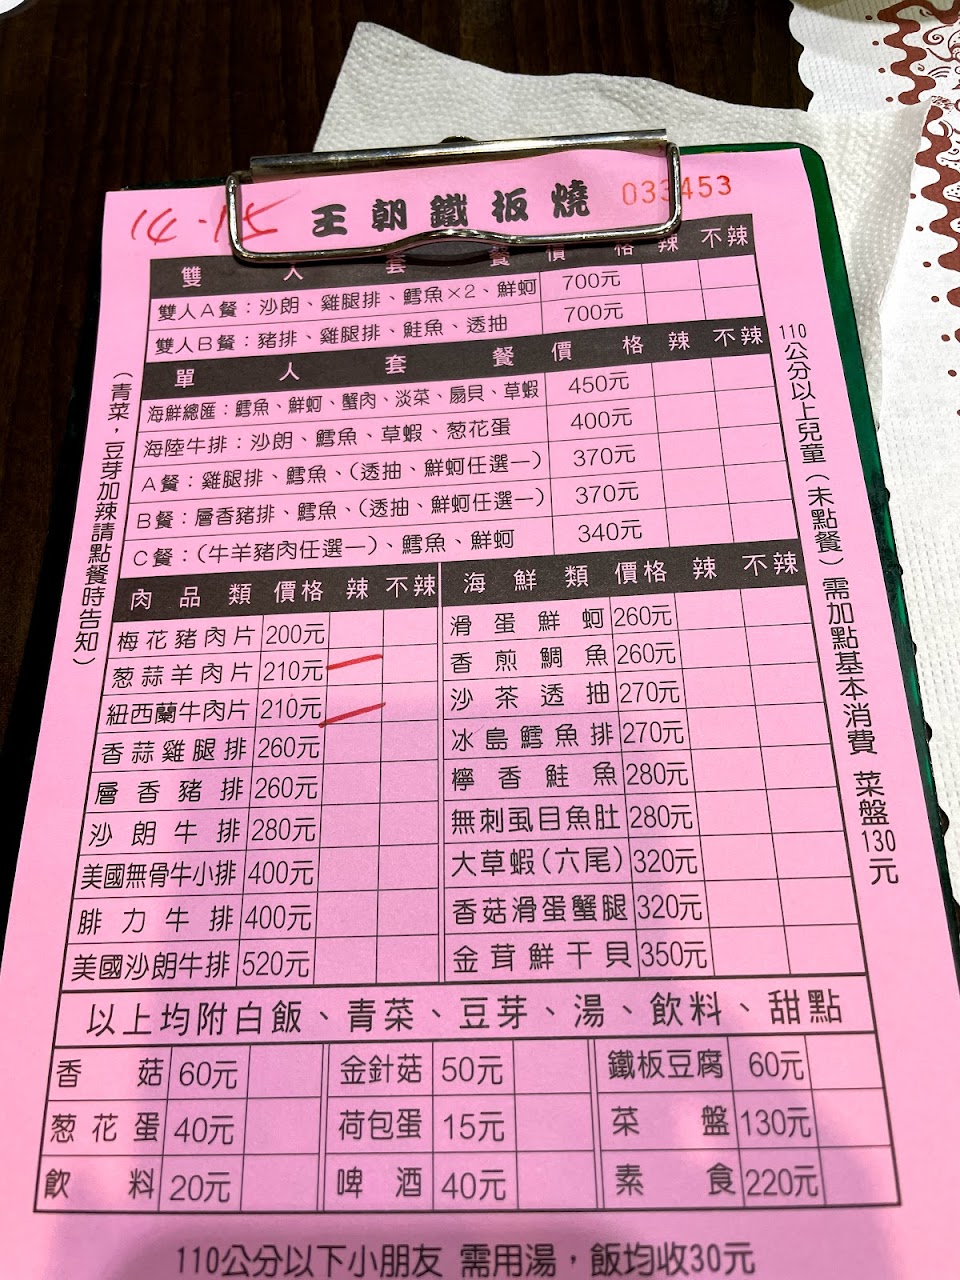 14-15 王朝鐵板燒 033453
雙人套餐 價格 辣 不辣
雙人A餐：沙朗、雞腿排、鱈魚×2、鮮蚵 700元
雙人B餐：豬排、雞腿排、鮭魚、透抽 700元
單人套餐 價格 辣 不辣
海鮮總匯：鱈魚、鮮蚵、蟹肉、淡菜、扇貝、草蝦 450元
海陸牛排：沙朗、鱈魚、草蝦、葱花蛋 400元
A餐：雞腿排、鱈魚、（透抽、鮮蚵任選一） 370元
B餐：層香豬排、鱈魚、（透抽、鮮蚵任選一） 370元
C餐：（牛羊豬肉任選一）、鱈魚、鮮蚵 340元
（青菜，豆芽加辣請點餐時告知）
110公分以上兒童（未點餐）需加點基本消費 菜盤130元
肉品類 價格 辣 不辣
梅花豬肉片 200元
葱蒜羊肉片 210元
紐西蘭牛肉片 210元
香蒜雞腿排 260元
層香豬排 260元
沙朗牛排 280元
美國無骨牛小排 400元
腓力牛排 400元
美國沙朗牛排 520元
海鮮類 價格 辣 不辣
滑蛋鮮蚵 260元
香煎鯛魚 260元
沙茶透抽 270元
冰島鱈魚排 270元
檸香鮭魚 280元
無刺虱目魚肚 280元
大草蝦（六尾） 320元
香菇滑蛋蟹腿 320元
金茸鮮干貝 350元
以上均附白飯、青菜、豆芽、湯、飲料、甜點
香菇 60元 金針菇 50元 鐵板豆腐 60元
葱花蛋 40元 荷包蛋 15元 菜盤 130元
飲料 20元 啤酒 40元 素食 220元
110公分以下小朋友 需用湯，飯均收30元